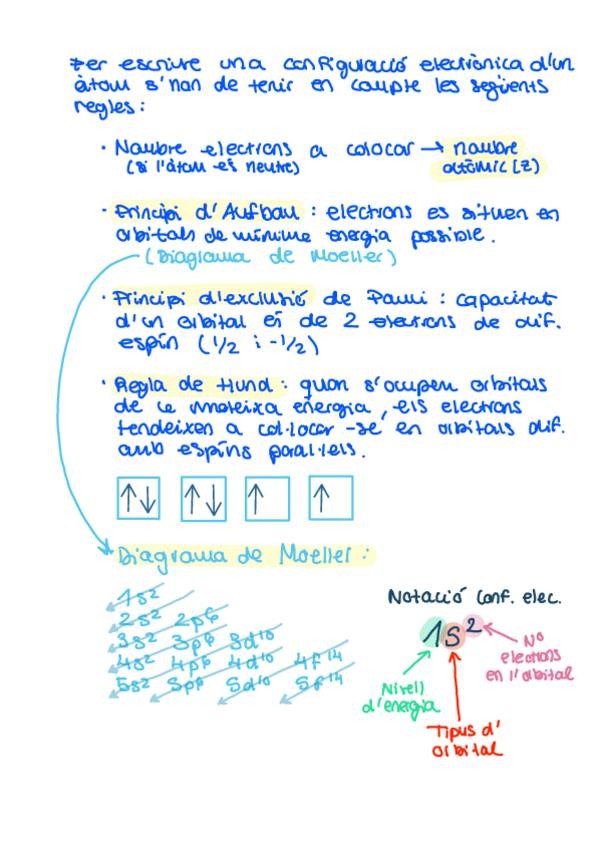 Per escriure una configuració electrònica d'un
àtom s'han de tenir en compte les següents
regles:
· Nombre electrons a colocar → nombre
(si l'àtom es neutre) atòmic (Z)
· Principi d'Aufbau: electrons es situen en
orbitals de mínima energia possible.
(Diagrama de Moeller)
· Principi d'exclusió de Pauli: capacitat
d'un orbital és de 2 electrons de dif.
espín (1/2 i -1/2)
· Regla de Hund: quan s'ocupen orbitals
de la mateixa energia, els electrons
tendeixen a col·locar-se en orbitals dif.
amb espíns paral·lels.
↑↓ ↑↓ ↑ ↑
Diagrama de Moeller:
1s²
2s² 2p⁶
3s² 3p⁶ 3d¹⁰
4s² 4p⁶ 4d¹⁰ 4f¹⁴
5s² 5p⁶ 5d¹⁰ 5f¹⁴
Notació conf. elec.
1s²
Nº
electrons
en l'orbital
Nivell
d'energia
Tipus d'
orbital